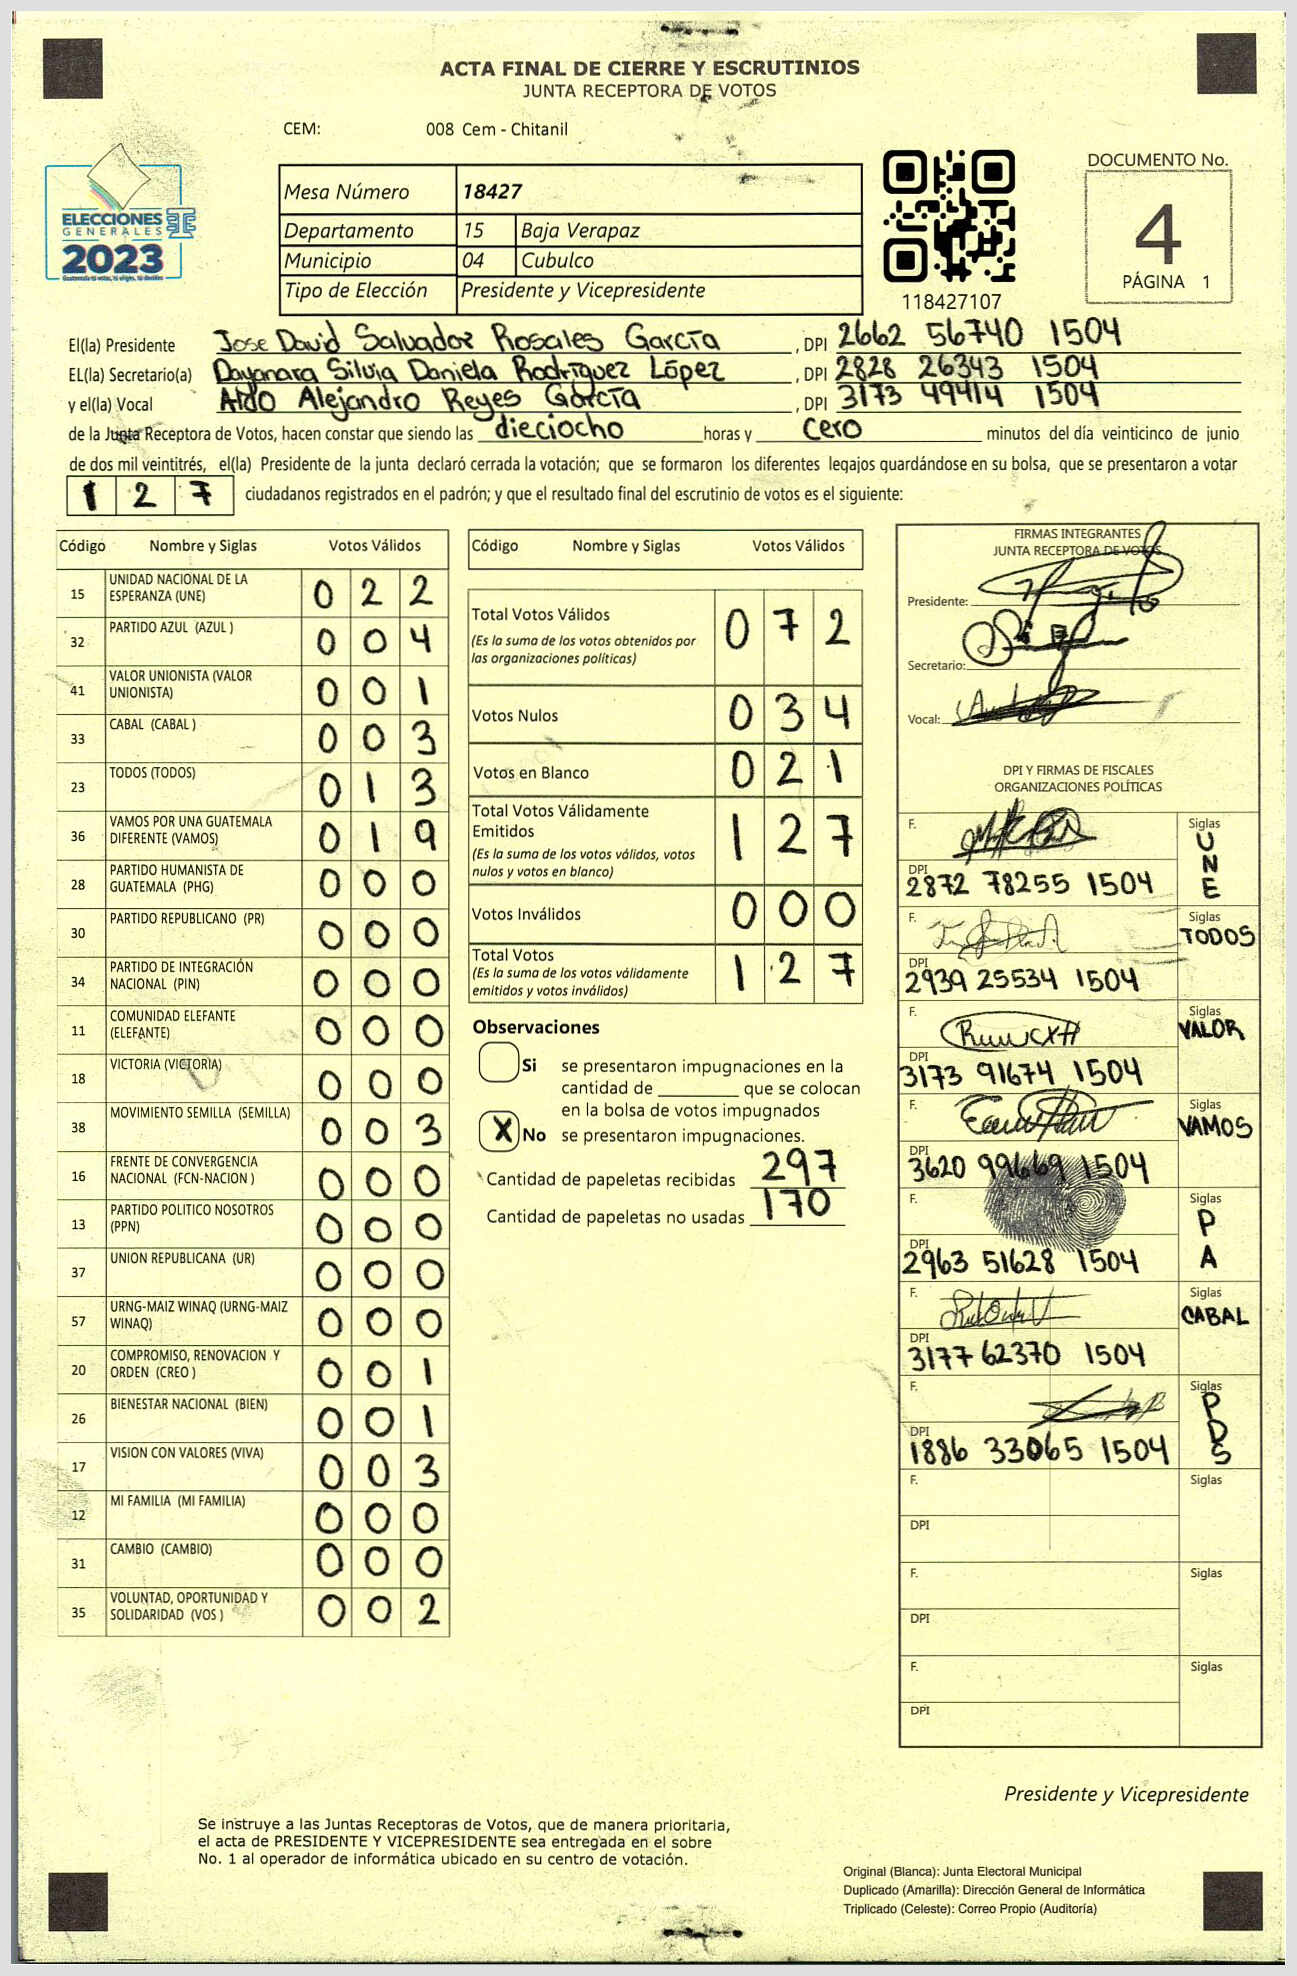 ACTA FINAL DE CIERRE Y ESCRUTINIOS
JUNTA RECEPTORA DE VOTOS
CEM: 008 Cem - Chitanil
ELECCIONES
GENERALES
2023
Mesa Número 18427
Departamento 15 Baja Verapaz
Municipio 04 Cubulco
Tipo de Elección Presidente y Vicepresidente
118427107
DOCUMENTO No.
4
PÁGINA 1
El(la) Presidente Jose David Salvador Rosales García , DPI 2662 56740 1504
EL(la) Secretario(a) Dayanara Silvia Daniela Rodríguez López , DPI 2828 26343 1504
y el(la) Vocal Aldo Alejandro Reyes García , DPI 3173 49414 1504
de la Junta Receptora de Votos, hacen constar que siendo las dieciocho horas y cero minutos del día veinticinco de junio
de dos mil veintitrés, el(la) Presidente de la junta declaró cerrada la votación; que se formaron los diferentes legajos guardándose en su bolsa, que se presentaron a votar
1 2 7 ciudadanos registrados en el padrón; y que el resultado final del escrutinio de votos es el siguiente:
Código Nombre y Siglas Votos Válidos
15 UNIDAD NACIONAL DE LA ESPERANZA (UNE) 0 2 2
32 PARTIDO AZUL (AZUL ) 0 0 4
41 VALOR UNIONISTA (VALOR UNIONISTA) 0 0 1
33 CABAL (CABAL ) 0 0 3
23 TODOS (TODOS) 0 1 3
36 VAMOS POR UNA GUATEMALA DIFERENTE (VAMOS) 0 1 9
28 PARTIDO HUMANISTA DE GUATEMALA (PHG) 0 0 0
30 PARTIDO REPUBLICANO (PR) 0 0 0
34 PARTIDO DE INTEGRACIÓN NACIONAL (PIN) 0 0 0
11 COMUNIDAD ELEFANTE (ELEFANTE) 0 0 0
18 VICTORIA (VICTORIA) 0 0 0
38 MOVIMIENTO SEMILLA (SEMILLA) 0 0 3
16 FRENTE DE CONVERGENCIA NACIONAL (FCN-NACION ) 0 0 0
13 PARTIDO POLITICO NOSOTROS (PPN) 0 0 0
37 UNION REPUBLICANA (UR) 0 0 0
57 URNG-MAIZ WINAQ (URNG-MAIZ WINAQ) 0 0 0
20 COMPROMISO, RENOVACION Y ORDEN (CREO ) 0 0 1
26 BIENESTAR NACIONAL (BIEN) 0 0 1
17 VISION CON VALORES (VIVA) 0 0 3
12 MI FAMILIA (MI FAMILIA) 0 0 0
31 CAMBIO (CAMBIO) 0 0 0
35 VOLUNTAD, OPORTUNIDAD Y SOLIDARIDAD (VOS ) 0 0 2
Código Nombre y Siglas Votos Válidos
Total Votos Válidos 0 7 2
(Es la suma de los votos obtenidos por
las organizaciones políticas)
Votos Nulos 0 3 4
Votos en Blanco 0 2 1
Total Votos Válidamente
Emitidos 1 2 7
(Es la suma de los votos válidos, votos
nulos y votos en blanco)
Votos Inválidos 0 0 0
Total Votos 1 2 7
(Es la suma de los votos válidamente
emitidos y votos inválidos)
Observaciones
Si se presentaron impugnaciones en la
cantidad de ________ que se colocan
en la bolsa de votos impugnados
X No se presentaron impugnaciones.
Cantidad de papeletas recibidas 297
Cantidad de papeletas no usadas 170
FIRMAS INTEGRANTES
JUNTA RECEPTORA DE VOTOS
Presidente:
Secretario:
Vocal:
DPI Y FIRMAS DE FISCALES
ORGANIZACIONES POLÍTICAS
F. Siglas UNE
DPI 2872 78255 1504
F. Siglas TODOS
DPI 2939 25534 1504
F. Siglas VALOR
DPI 3173 91674 1504
F. Siglas VAMOS
DPI 3620 99669 1504
F. Siglas PA
DPI 2963 51628 1504
F. Siglas CABAL
DPI 3177 62370 1504
F. Siglas PDS
DPI 1886 33065 1504
F. Siglas
DPI
F. Siglas
DPI
F. Siglas
DPI
Presidente y Vicepresidente
Se instruye a las Juntas Receptoras de Votos, que de manera prioritaria,
el acta de PRESIDENTE Y VICEPRESIDENTE sea entregada en el sobre
No. 1 al operador de informática ubicado en su centro de votación.
Original (Blanca): Junta Electoral Municipal
Duplicado (Amarilla): Dirección General de Informática
Triplicado (Celeste): Correo Propio (Auditoría)